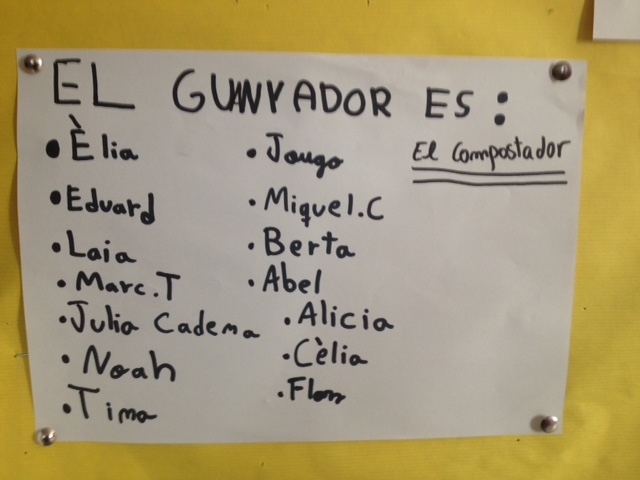 EL GUNYADOR ES:
• Èlia
• Eduard
• Laia
• Marc.T
• Julia Cadema
• Noah
• Tima
• Jougo
• Miquel.C
• Berta
• Abel
• Alicia
• Cèlia
El Compostador